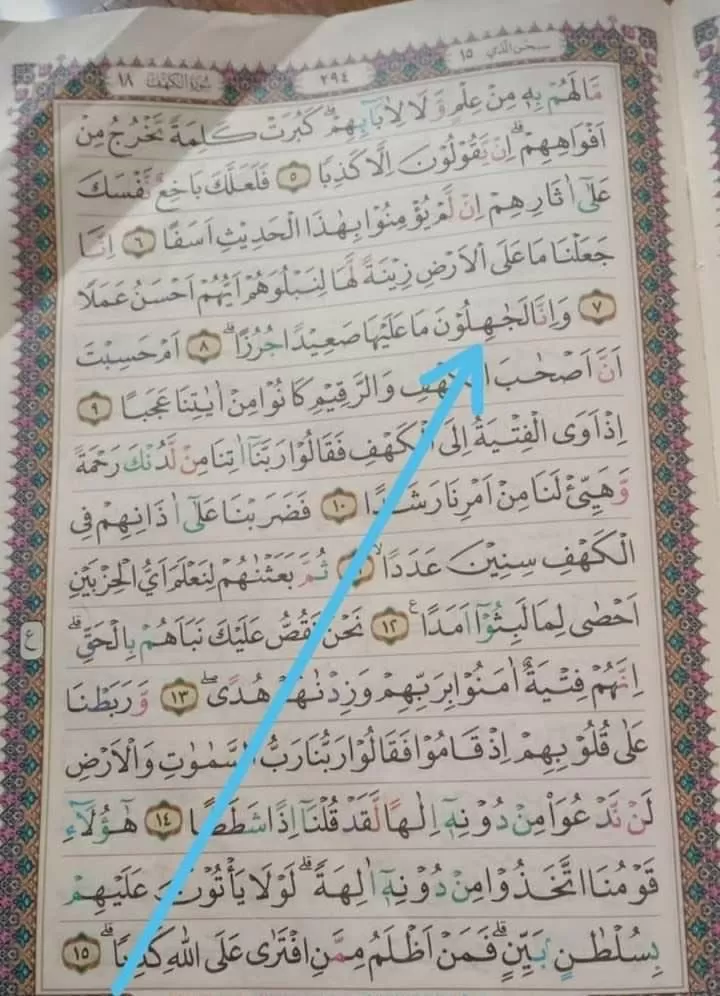 سبحن الذي ١٥
٢٩٤
سُوْرَةُ الْكَهْفِ ١٨
مَا لَهُمْ بِهٖ مِنْ عِلْمٍ وَّلَا لِاٰبَاۤىِٕهِمْۗ كَبُرَتْ كَلِمَةً تَخْرُجُ مِنْ
اَفْوَاهِهِمْۗ اِنْ يَّقُوْلُوْنَ اِلَّا كَذِبًا ٥ فَلَعَلَّكَ بَاخِعٌ نَّفْسَكَ
عَلٰٓى اٰثَارِهِمْ اِنْ لَّمْ يُؤْمِنُوْا بِهٰذَا الْحَدِيْثِ اَسَفًا ٦ اِنَّا
جَعَلْنَا مَا عَلَى الْاَرْضِ زِيْنَةً لَّهَا لِنَبْلُوَهُمْ اَيُّهُمْ اَحْسَنُ عَمَلًا
٧ وَاِنَّا لَجٰهِلُوْنَ مَا عَلَيْهَا صَعِيْدًا جُرُزًاۗ ٨ اَمْ حَسِبْتَ
اَنَّ اَصْحٰبَ الْكَهْفِ وَالرَّقِيْمِ كَانُوْا مِنْ اٰيٰتِنَا عَجَبًا ٩
اِذْ اَوَى الْفِتْيَةُ اِلَى الْكَهْفِ فَقَالُوْا رَبَّنَآ اٰتِنَا مِنْ لَّدُنْكَ رَحْمَةً
وَّهَيِّئْ لَنَا مِنْ اَمْرِنَا رَشَدًا ١٠ فَضَرَبْنَا عَلٰٓى اٰذَانِهِمْ فِى
الْكَهْفِ سِنِيْنَ عَدَدًاۙ ثُمَّ بَعَثْنٰهُمْ لِنَعْلَمَ اَيُّ الْحِزْبَيْنِ
اَحْصٰى لِمَا لَبِثُوْٓا اَمَدًا ࣖ ١٢ نَحْنُ نَقُصُّ عَلَيْكَ نَبَاَهُمْ بِالْحَقِّۗ
ع
اِنَّهُمْ فِتْيَةٌ اٰمَنُوْا بِرَبِّهِمْ وَزِدْنٰهُمْ هُدًىۖ ١٣ وَّرَبَطْنَا
عَلٰى قُلُوْبِهِمْ اِذْ قَامُوْا فَقَالُوْا رَبُّنَا رَبُّ السَّمٰوٰتِ وَالْاَرْضِ
لَنْ نَّدْعُوَا۟ مِنْ دُوْنِهٖٓ اِلٰهًا لَّقَدْ قُلْنَآ اِذًا شَطَطًا ١٤ هٰٓؤُلَاۤءِ
قَوْمُنَا اتَّخَذُوْا مِنْ دُوْنِهٖٓ اٰلِهَةًۗ لَوْلَا يَأْتُوْنَ عَلَيْهِمْ
بِسُلْطٰنٍۢ بَيِّنٍۗ فَمَنْ اَظْلَمُ مِمَّنِ افْتَرٰى عَلَى اللّٰهِ كَذِبًاۗ ١٥